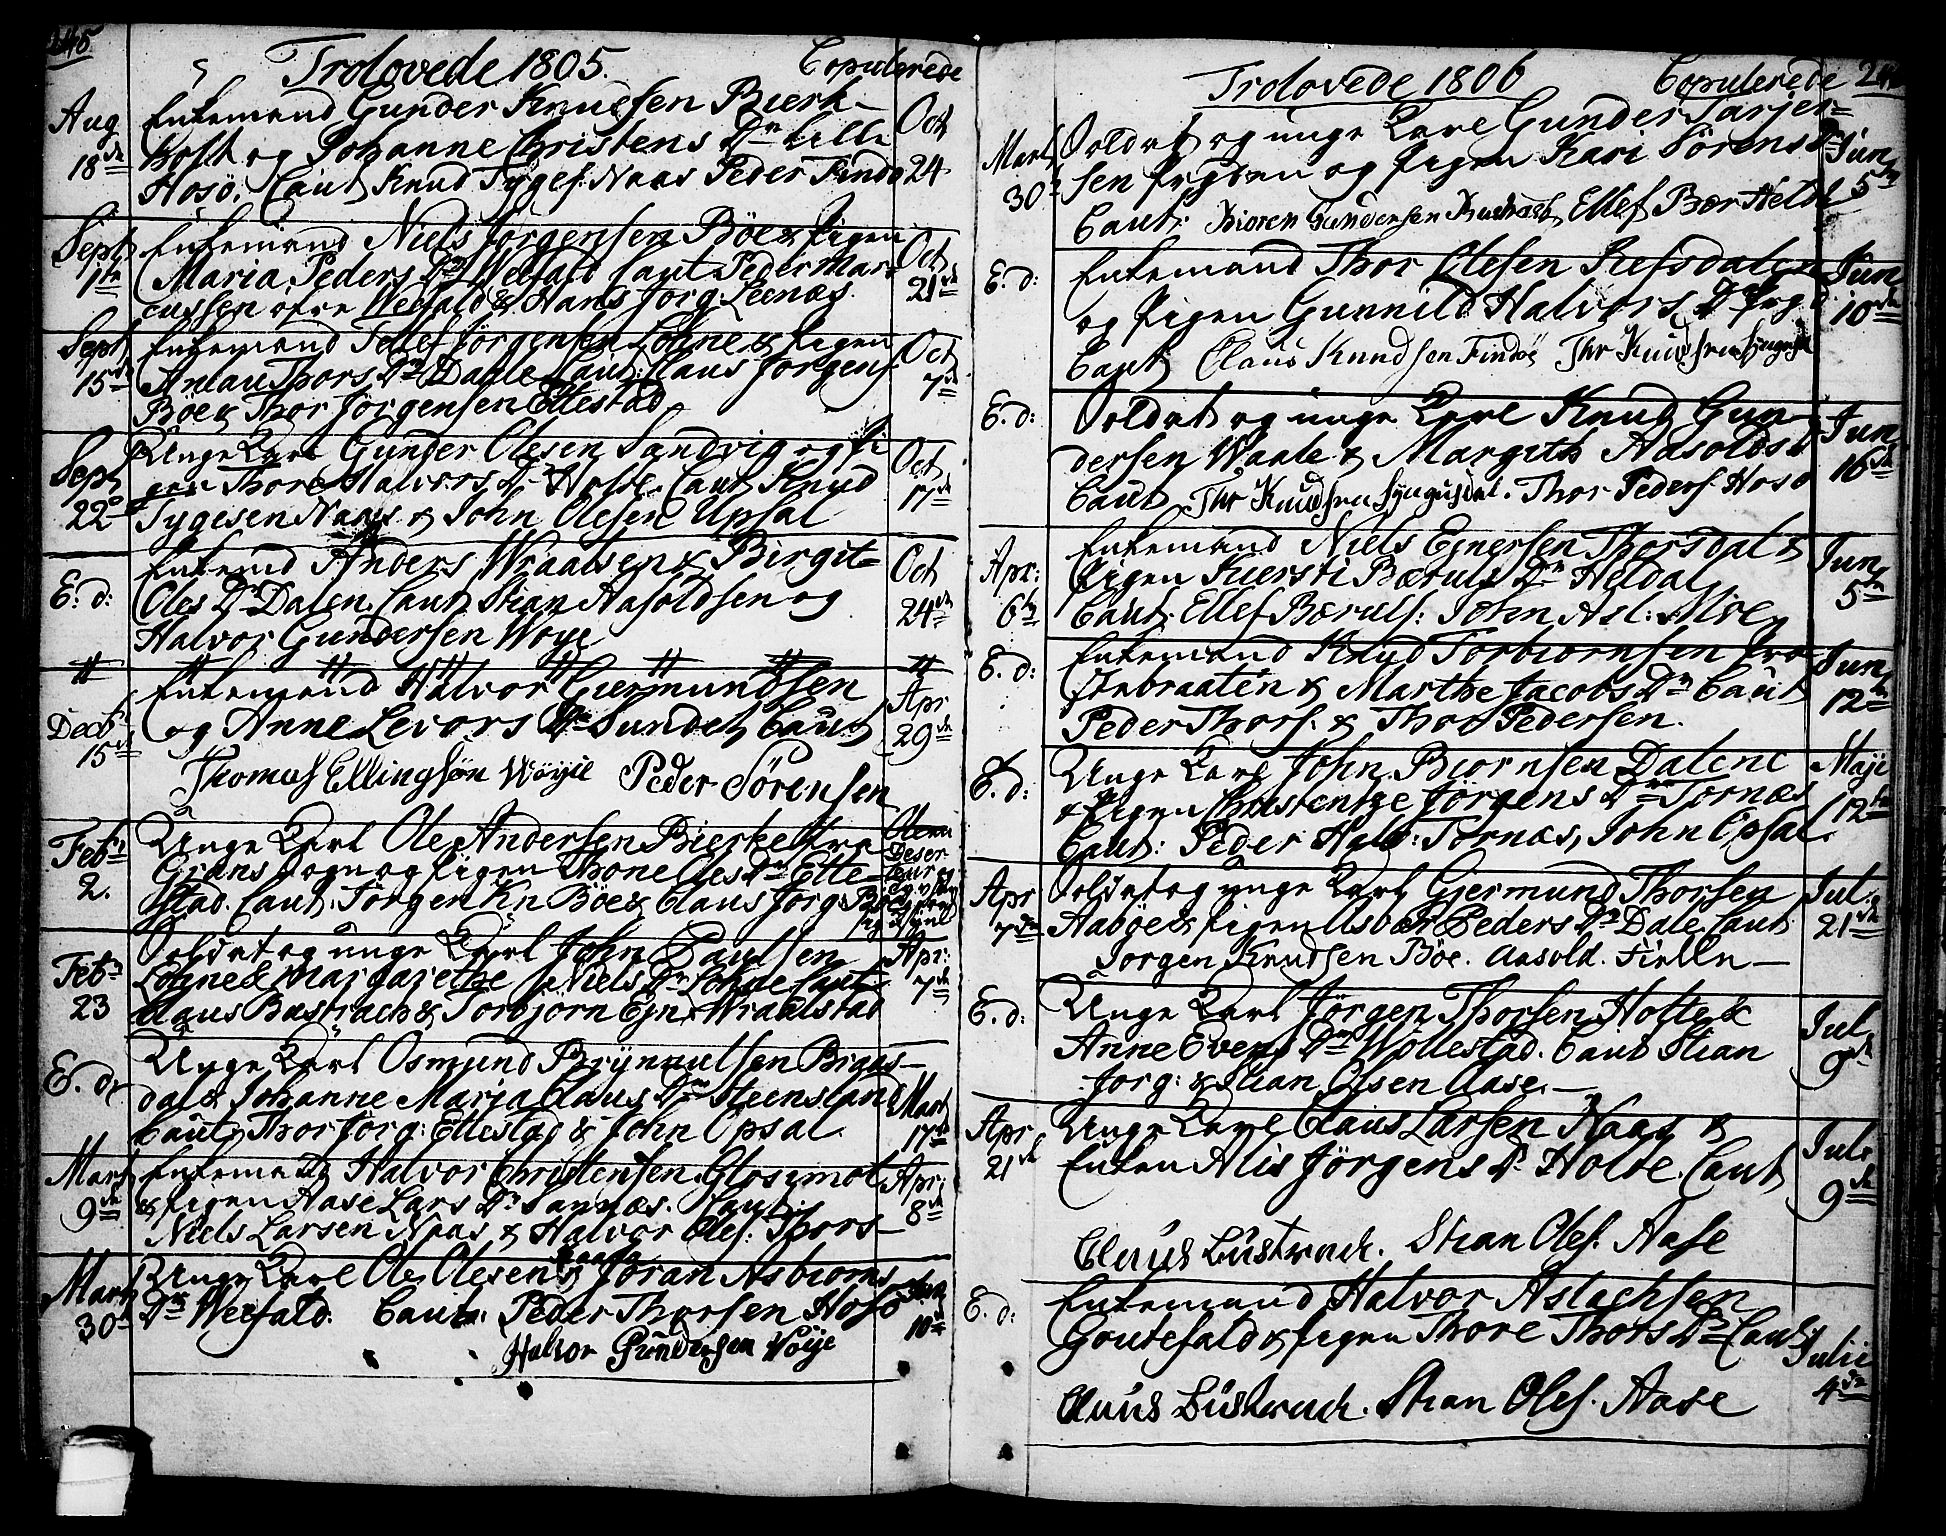 245
Trolovede 1805. Copulerede
Aug 18de
Enkemand Gunder Knudsen Bierk-
holt og Johanne Christens Dr Lille
Hosö. Caut Knud Tygef. Naas Peder Findö
Oct 24
Sept 1te
Enkemand Niels Jörgensen Böe & Pigen
Maria Peders Dr Weefald Caut Peder Mar
cussen öfre Weefald & Hans Jörg Leenæs
Oct 21de
Sept 15de
Enkemand Tellef Jörgensen Lohne & Pigen
Anlau Thors Dr Dahle Caut: Claus Jörgens.
Böe & Thor Jörgensen Ettestad
Oct 7de
Sept 22de
Unge Karl Gunder Olesen Sandvig og Pi
gen Thore Halvors Dr Holte. Caut Knud
Tygesen Naas & John Olesen Upsal
Oct 17de
E: d:
Enkemd Anders Wraalsen & Birgit
Oles Dr Dalen. Caut Stian Aasoldsen og
Halvor Gundersen Woye
Oct 24de
Decbr 15de
Enkemand Halvor Giermundsen
og Anne Levors Dr Sundet Caut
Thomas Ellingsön Wöyie Peder Sörensen
Apr 29de
Febr 2.
Unge Karl Ole Andersen Bierke fra
Grans Sogn og Pigen Thone Oles Dr Ette-
stad. Caut. Jörgen Kn Böe & Claus Jörg: Böe
Febr 23
Soldat og unge Karl John Paulsen
Lohne & Margarethe Niels Dr Lohne Caut
Claus Bustrach & Torbjörn Ejn: Wraalstad
Apr: 7de
E. d:
Unge Karl Osmund Brynnulsen Brgas-
dal & Johanne Marja Claus Dr Steensland
Caut Thor Jörg: Ettestad & John Opsal
Mart 17de
Mart 9de
Enkemand Halvor Christensen Glosimot
& Pigen Aase Lars Dr Sannæs. Caut:
Niels Larsen Naas & Halvor Oles. Thors-
Apr: 8de
Mart 30de
Unge Karl Ole Olesen & Jöran Asbiorns
Dr Weefald. Caut: Peder Thorsen Hosö
Halvor Gundersen Wöije
Jun 10de
Trolovede 1806 Copulerede
Mart 30te
Soldat og unge Karl Gunder Tarjer-
sen frgden og Pigen Kari Sörens Dr
Caut: Biören Gundersen Ellef Bær Heldal
Jun 5te
E. d:
Enkemand Thor Olesen Refsdalen
og Pigen Gunnild Halvors Dr frgd
Caut Claus Knudsen Findöe Thor Knudsen Syngusdal
Jun 10de
E. d:
Soldat og unge Karl Knud Gun-
dersen Waale & Margith Aasolds D
Caut Thor Knudsen Syngusdal. Thor Peders: Hosö
Jun 16de
Apr: 6te
Enkemand Niels Ejnersen Thorsdal &
Pigen Kiersti Bæruls Dr Heldal
Caut: Ellef Bæruls: John Asl: Mve
Jun 5te
E. d:
Enkemand Knud Torbiornsen fra
Stebraaten & Marthe Jacobs Dr Caut
Peder Thors. & Thor Pedersen.
Jun 12te
E. d:
Unge Karl John Biornsen Dalene
& Pigen Christentze Jörgens Dr Tornæs
Caut: Peder Halv: Tornæs, John Opsal.
Maji 12te
Apr 7de
Soldat og unge Karl Gjermund Thorsen
Aaböe & Pigen Asvær Peders Dr Dale Caut
Jorgen Knudsen Böe. Aasold. Fielln-
Jul. 21de
E. d:
Unge Karl Jörgen Thorsen Holte &
Anne Evens Dr Wollestad. Caut Stian
Jorg: & Stian Olsen Aase.-
Jul 9de
Apr 21de
Unge Karl Claus Larsen Naas &
Enken Alis Jörgens Dr Holte. Caut
Claus Bustrach. Stian Oles. Aase
Jul. 9de
E. d:
Enkemand Halvor Aslachsen
Goutefald & Pigen Thore Thors Dr Caut
Claus Bustrach. Stian Oles. Aase
Julii 4de